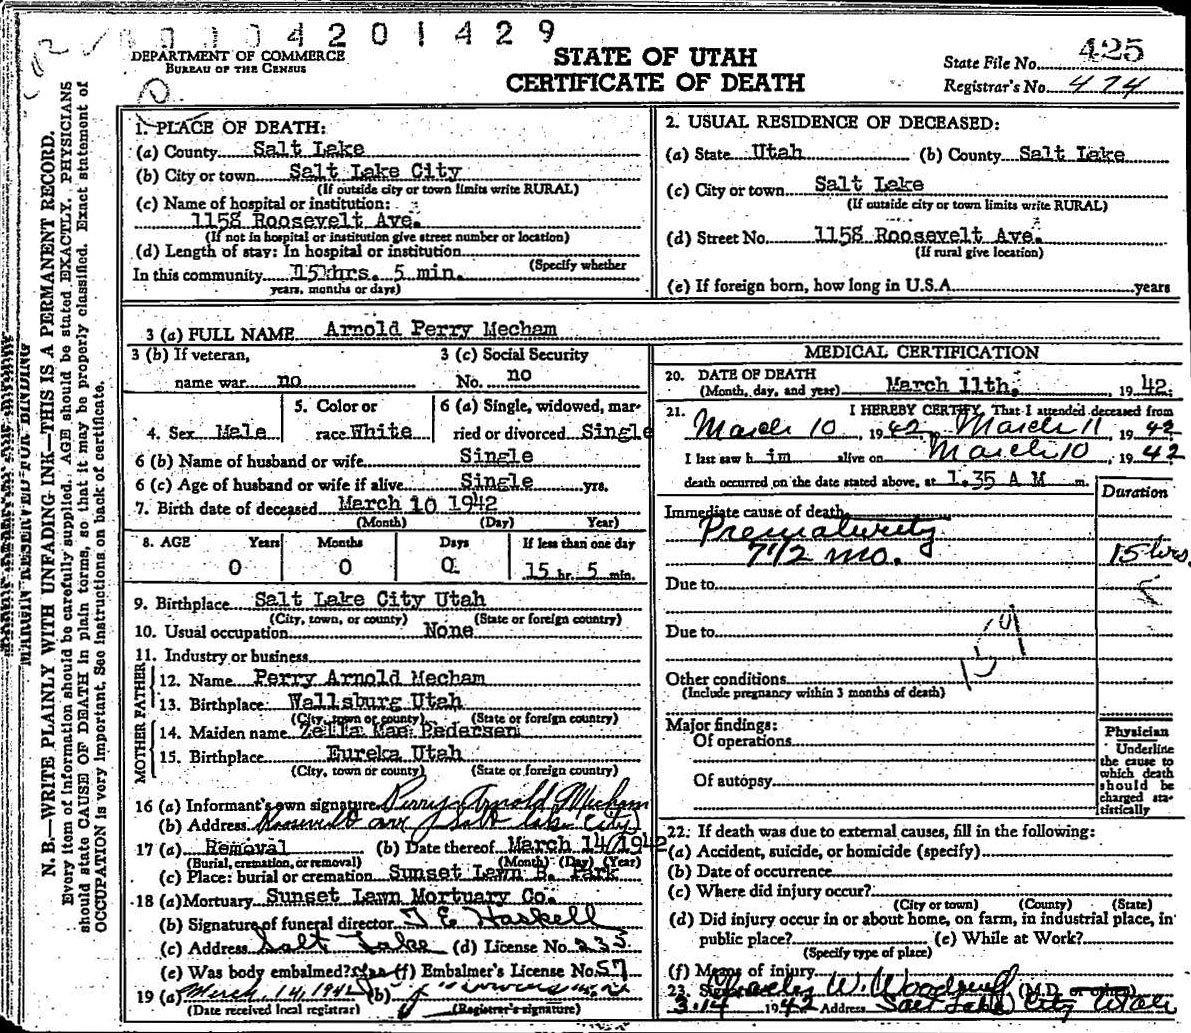 0 0 0 4 2 0 1 4 2 9
DEPARTMENT OF COMMERCE
BUREAU OF THE CENSUS
STATE OF UTAH
CERTIFICATE OF DEATH
State File No. 425
Registrar's No. 474
MARGIN RESERVED FOR BINDING
N. B.—WRITE PLAINLY WITH UNFADING INK—THIS IS A PERMANENT RECORD.
Every item of information should be carefully supplied. AGE should be stated EXACTLY. PHYSICIANS
should state CAUSE OF DEATH in plain terms, so that it may be properly classified. Exact statement of
OCCUPATION is very important. See instructions on back of certificate.
1. PLACE OF DEATH:
(a) County Salt Lake
(b) City or town Salt Lake City
(If outside city or town limits write RURAL)
(c) Name of hospital or institution:
1158 Roosevelt Ave.
(If not in hospital or institution give street number or location)
(d) Length of stay: In hospital or institution
(Specify whether
In this community 15 hrs. 5 min.
years, months or days)
2. USUAL RESIDENCE OF DECEASED:
(a) State Utah (b) County Salt Lake
(c) City or town Salt Lake
(If outside city or town limits write RURAL)
(d) Street No. 1158 Roosevelt Ave.
(If rural give location)
(e) If foreign born, how long in U.S.A. years
3 (a) FULL NAME Arnold Perry Mecham
3 (b) If veteran, 3 (c) Social Security
name war no No. no
4. Sex Male 5. Color or race White 6 (a) Single, widowed, married or divorced Single
6 (b) Name of husband or wife Single
6 (c) Age of husband or wife if alive Single yrs.
7. Birth date of deceased March 10 1942
(Month) (Day) Year)
8. AGE Years Months Days If less than one day
0 0 0 15 hr. 5 min.
9. Birthplace Salt Lake City Utah
(City, town, or county) (State or foreign country)
10. Usual occupation None
11. Industry or business
FATHER
12. Name Perry Arnold Mecham
13. Birthplace Wallsburg Utah
(City, town or county) (State or foreign country)
MOTHER
14. Maiden name Zella Mae Pedersen
15. Birthplace Eureka Utah
(City, town or county) (State or foreign country)
16 (a) Informant's own signature Perry Arnold Mecham
(b) Address Roosevelt ave Salt lake City
17 (a) Removal (b) Date thereof March 14/1942
(Burial, cremation, or removal) (Month) (Day) (Year)
(c) Place: burial or cremation Sunset Lawn B. Park
18 (a) Mortuary Sunset Lawn Mortuary Co.
(b) Signature of funeral director T E Haskell
(c) Address Salt Lake (d) License No. 235
(e) Was body embalmed? (f) Embalmer's License No. 57
19 (a) March 14, 1942 (b)
(Date received local registrar) (Registrar's signature)
MEDICAL CERTIFICATION
20. DATE OF DEATH
(Month, day, and year) March 11th, 1942.
21. I HEREBY CERTIFY, That I attended deceased from
March 10, 1942, March 11, 1942
I last saw him alive on March 10, 1942
death occurred on the date stated above, at 1.35 A M m.
Duration
Immediate cause of death
Prematurity
7 1/2 mo. 15 hrs.
Due to
Due to
159
Other conditions
(Include pregnancy within 3 months of death)
Major findings:
Of operations
Of autopsy
Physician
Underline
the cause to
which death
should be
charged sta-
tistically
22. If death was due to external causes, fill in the following:
(a) Accident, suicide, or homicide (specify)
(b) Date of occurrence
(c) Where did injury occur?
(City or town) (County) (State)
(d) Did injury occur in or about home, on farm, in industrial place, in
public place? (e) While at Work?
(Specify type of place)
(f) Means of injury
23. Signature Charles W. Woodruff (M.D. or other)
3-14 1942 Address Salt Lake City Utah